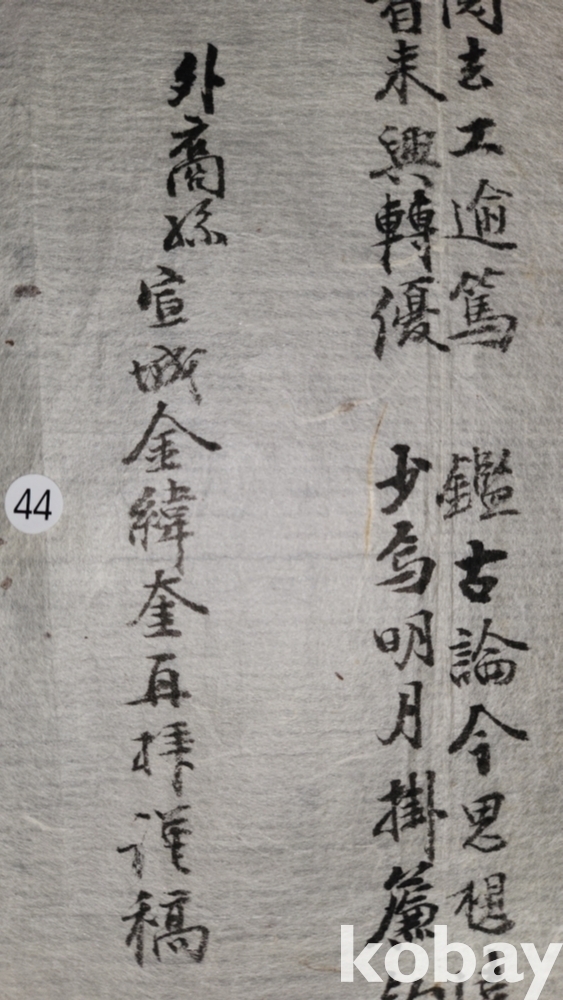 去工逾篤 鑑古論今思想
來興轉優 少焉明月掛簾
外裔孫宣城金緯奎再拜謹稿
44
kobay